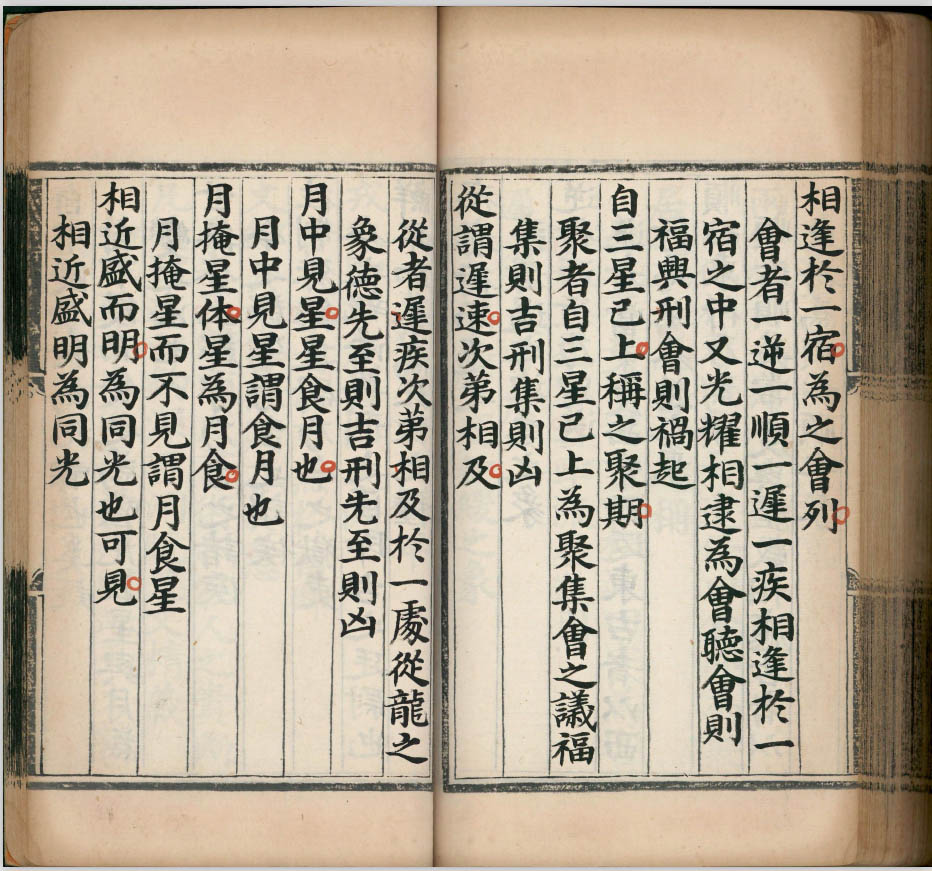 相逢於一宿為之會列
會者一逆一順一遲一疾相逢於一
宿之中又光耀相逮為會聽會則
福興刑會則禍起
自三星已上稱之聚期
聚者自三星已上為聚集會之議福
集則吉刑集則凶
從謂遲速次第相及
從者遲疾次第相及於一處從龍之
象德先至則吉刑先至則凶
月中見星星食月也
月中見星謂食月也
月掩星体星為月食
月掩星而不見謂月食星
相近盛而明為同光也可見
相近盛明為同光